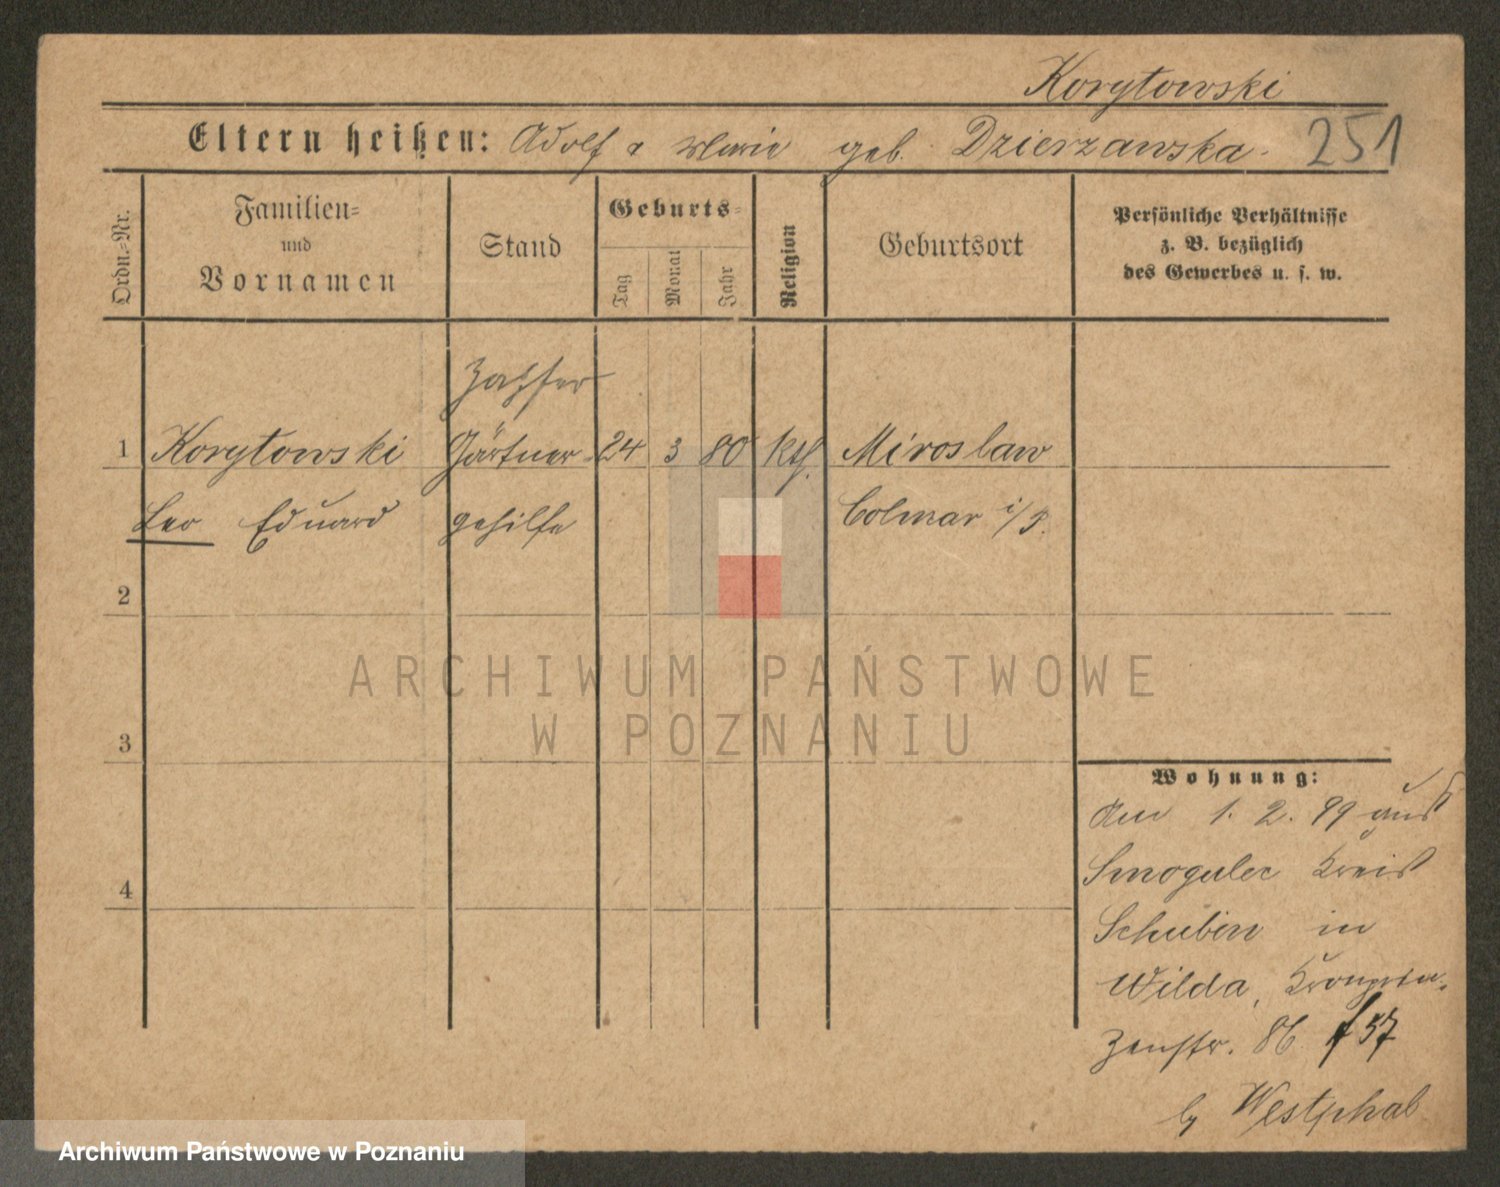 Korytowski
Eltern heißen: Adolf u Marie geb. Dzierzawska.
251
Ordn.=Nr.
Familien=
und
Vornamen
Stand
Geburts=
Tag
Monat
Jahr
Religion
Geburtsort
Persönliche Verhältnisse
z. B. bezüglich
des Gewerbes u. s. w.
1 Korytowski Gärtner 24 3 80 kth. Miroslaw
Leo Eduard gehilfe Colmar i/P.
2
3
4
ARCHIWUM PAŃSTWOWE
W POZNANIU
Wohnung:
Am 1. 2. 99 aus
Smogulec Kreis
Schubin in
Wilda, Kronprin-
zenstr. 86 f 57
by Westphal
Archiwum Państwowe w Poznaniu